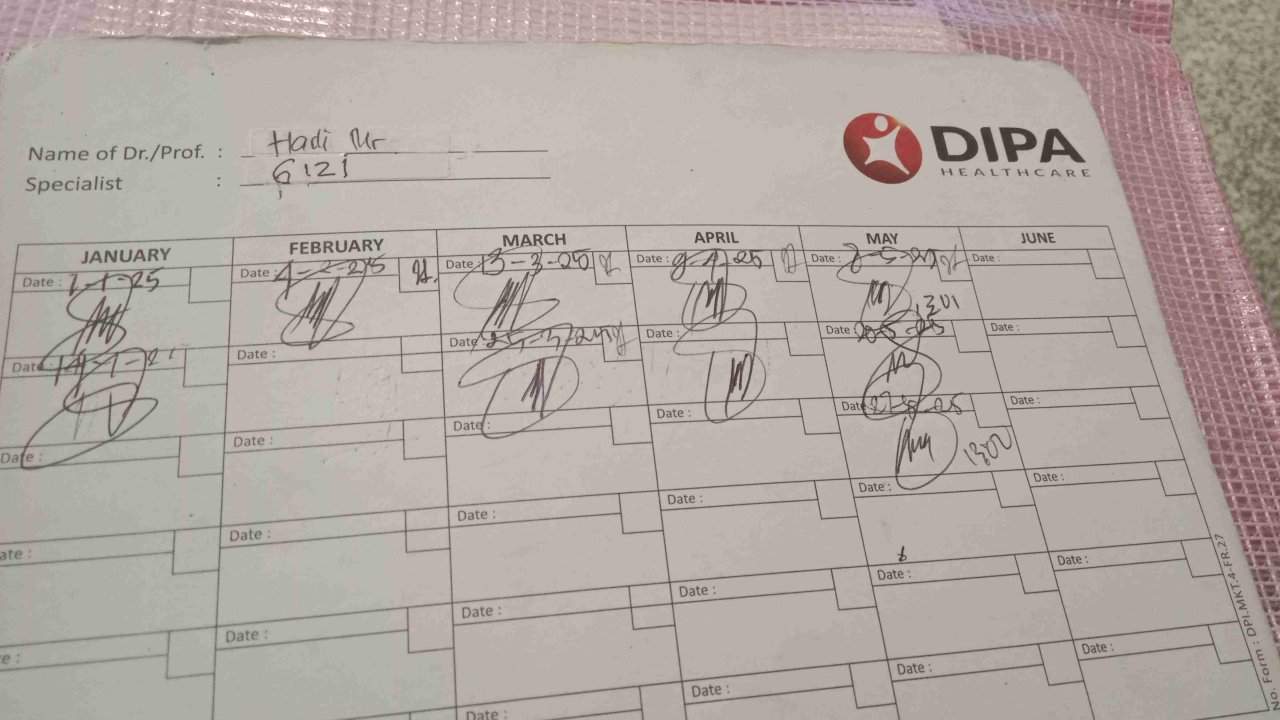 Name of Dr./Prof. : Hadi Mr
Specialist : 6121
DIPA
HEALTHCARE
JANUARY FEBRUARY MARCH APRIL MAY JUNE
Date : 7-1-25 Date : 4-2-25 Date : 13-3-25 Date : 9-4-25 Date : Date :
Date : Date : Date : Date : Date : 20-5-25 Date :
Date : Date : Date : Date : Date : 27-5-25 Date :
1300
ate : Date : Date : Date : Date : Date :
e : Date : Date : Date : Date : Date :
Date : Date : Date : Date :
No. Form : DPI.MKT-4-FR.27